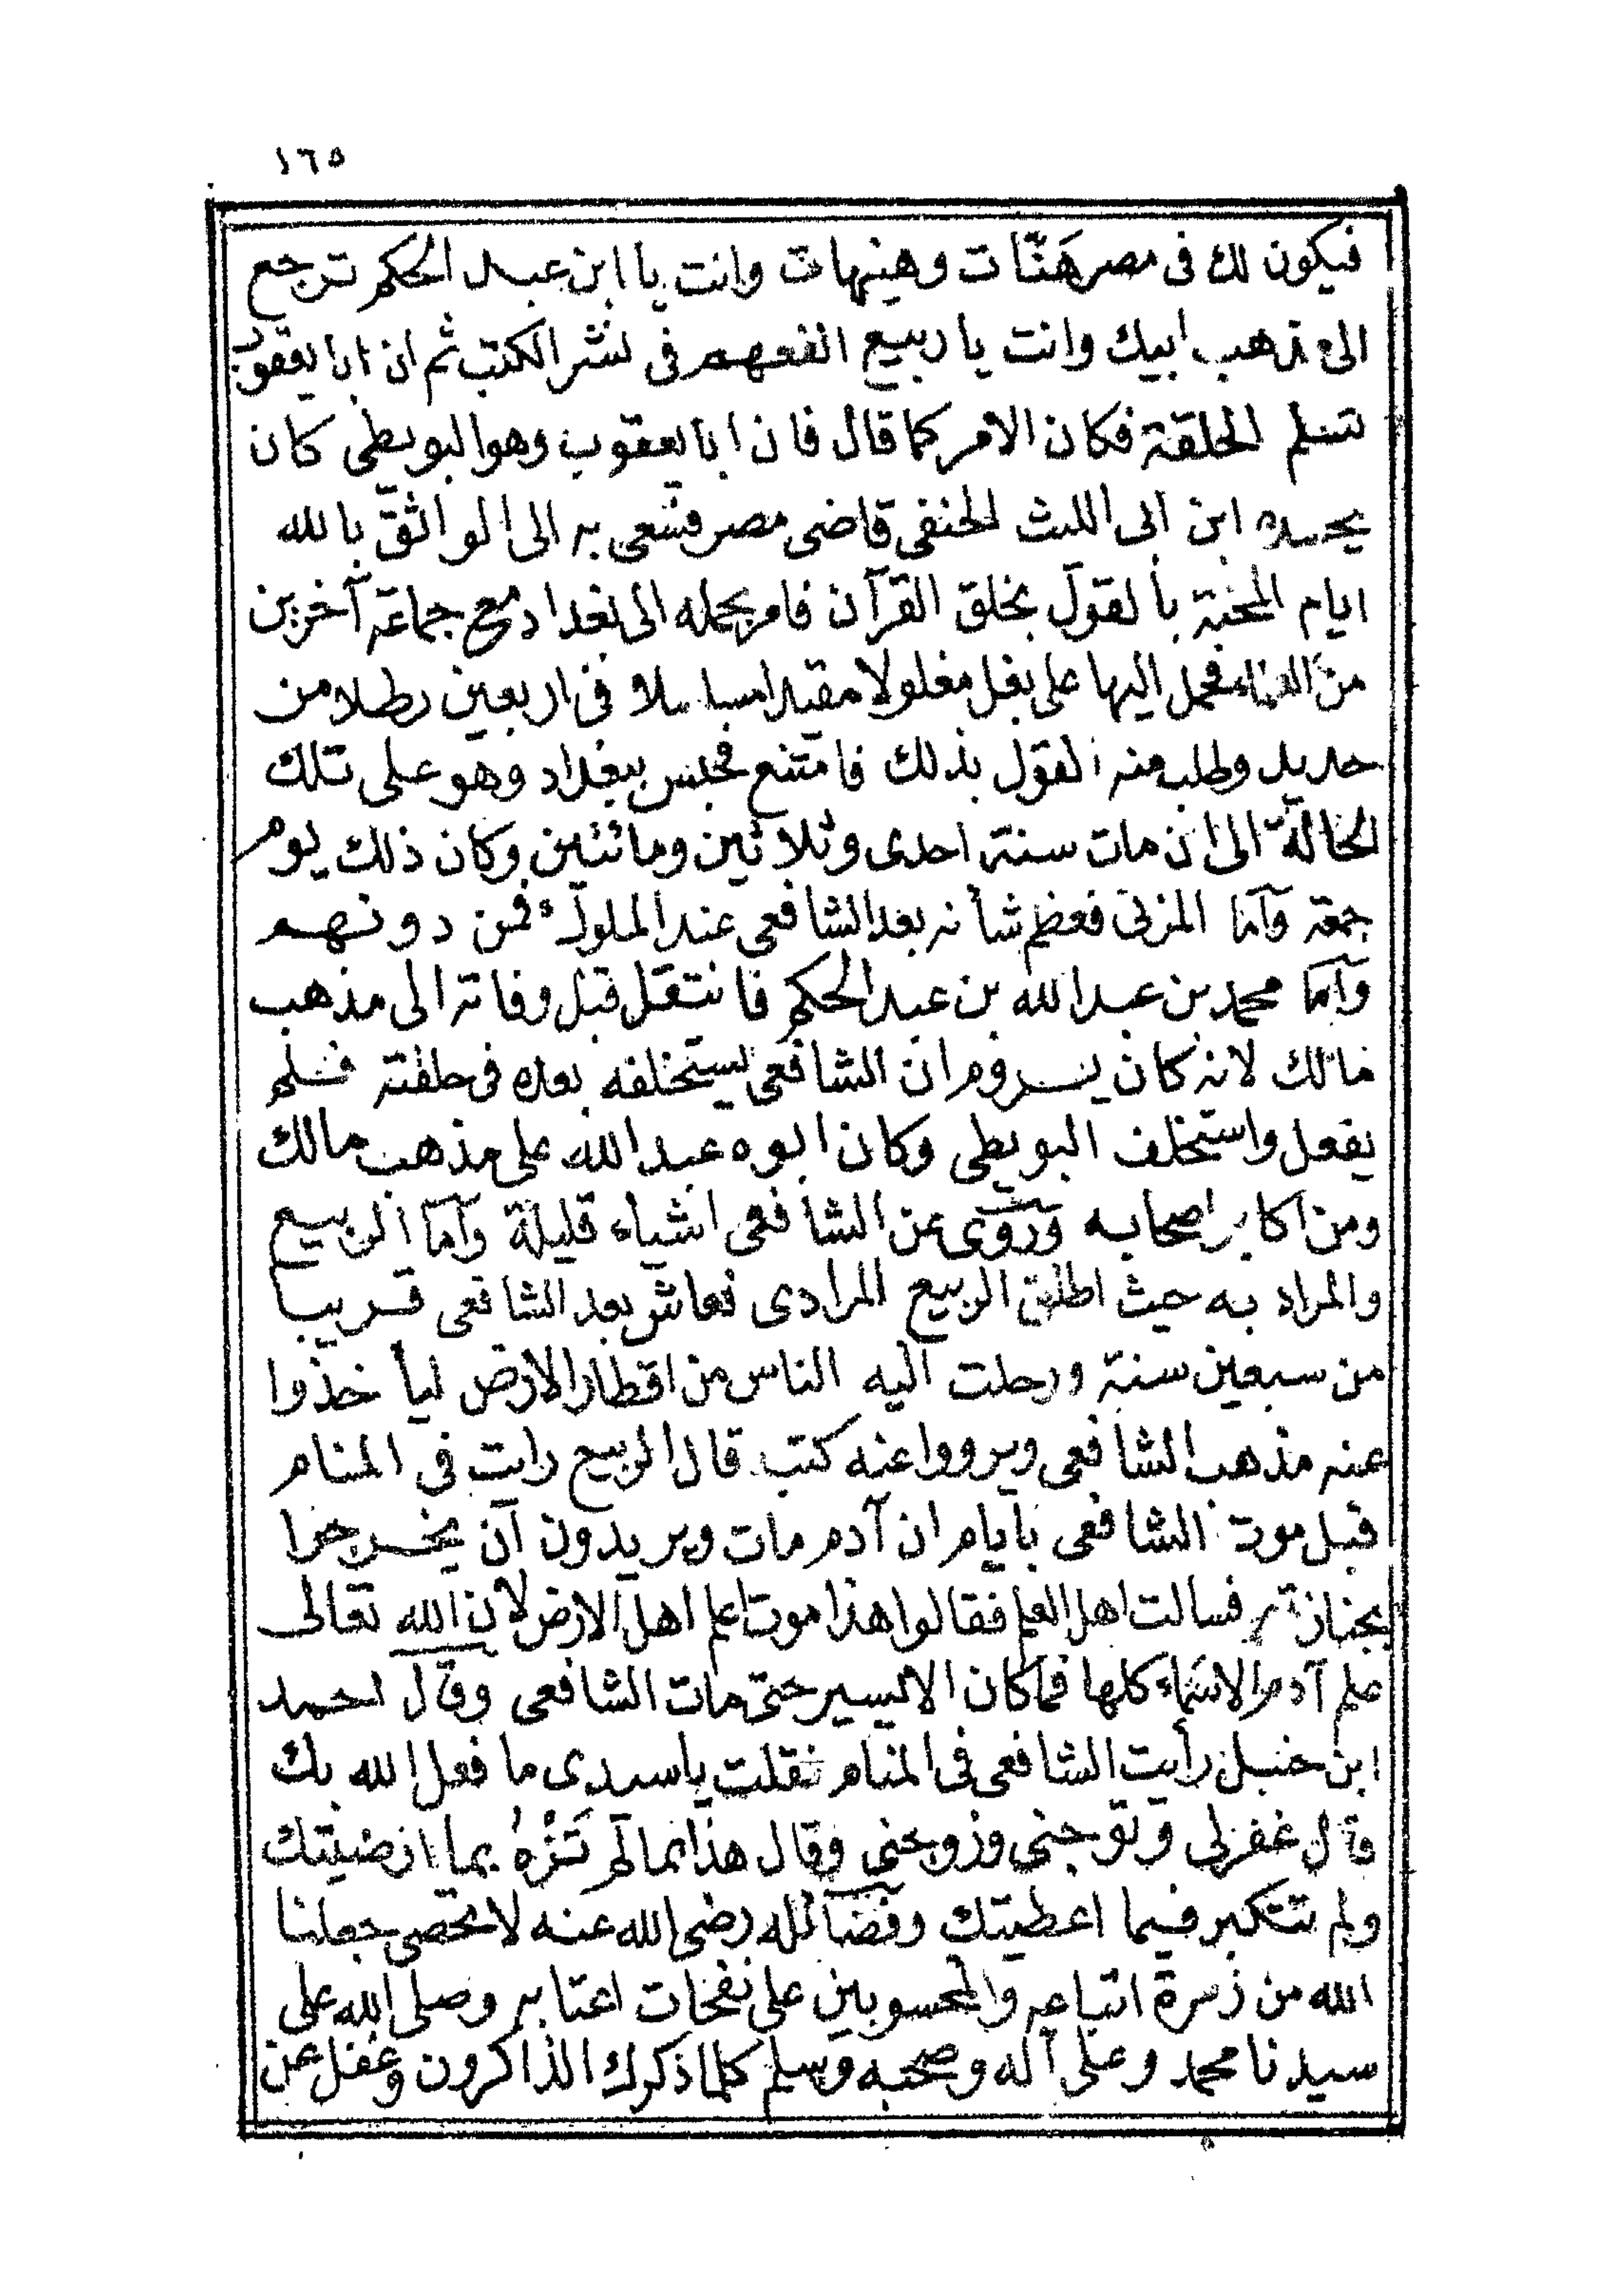 ١٦٥
فيكون لك فى مصر هَنَّات وهنيهات وانت يا ابن عبد الحكم ترجع
الى مذهب ابيك وانت يا ربيع انفعهم فى نشر الكتب ثم ان ابا يعقوب
تسلم الحلقة فكان الامر كما قال فان ابا يعقوب وهو البويطى كان
يحسده ابن ابى الليث الحنفى قاضى مصر فسعى به الى الواثق بالله
ايام المحنة بالقول بخلق القرآن فامر بحمله الى بغداد مع جماعة آخرين
من العلماء فحمل اليها على بغل مغلولا مقيدا مسلسلا فى اربعين رطلا من
حديد وطلب منه القول بذلك فامتنع فحبس ببغداد وهو على تلك
الحالة الى ان مات سنة احدى وثلاثين ومائتين وكان ذلك يوم
جمعة وآما المزنى فعظم شأنه بعد الشافعى عند الملوك فمن دونهم
وآما محمد بن عبد الله بن عبد الحكم فانتقل قبل وفاته الى مذهب
مالك لانه كان يروم ان الشافعى يستخلفه بعده فى حلقته فلم
يفعل واستخلف البويطى وكان ابوه عبد الله على مذهب مالك
ومن اكابر اصحابه وروى عن الشافعى اشياء قليلة وآما الربيع
والمراد به حيث اطلق الربيع المرادى فعاش بعد الشافعى قريبا
من سبعين سنة ورحلت اليه الناس من اقطار الارض ليأخذوا
عنه مذهب الشافعى ويرووا عنه كتبه قال الربيع رايت فى المنام
قبل موت الشافعى بايام ان آدم مات ويريدون آن يخرجوا
بجنازته فسالت اهل العلم فقالوا هذا موت اعلم اهل الارض لان الله تعالى
علم آدم الاسماء كلها فما كان الا يسير حتى مات الشافعى وقال احمد
ابن حنبل رأيت الشافعى فى المنام فقلت ياسيدى ما فعل الله بك
قال غفر لى وتوجنى وزوجنى وقال هذا بما لم تَزْهُ بما ارضيتك
ولم تتكبر فيما اعطيتك وفضآئله رضى الله عنه لا تحصى جعلنا
الله من زمرة اتباعه والمحسوبين على نفحات اعتابه وصلى الله على
سيدنا محمد وعلى آله وصحبه وسلم كلما ذكرك الذاكرون وغفل عن